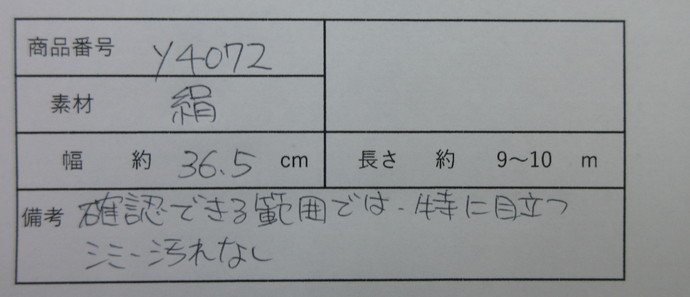 商品番号 Y4072
素材 絹
幅 約 36.5 cm 長さ 約 9～10 m
備考 確認できる範囲では、特に目立つ
シミ・汚れなし